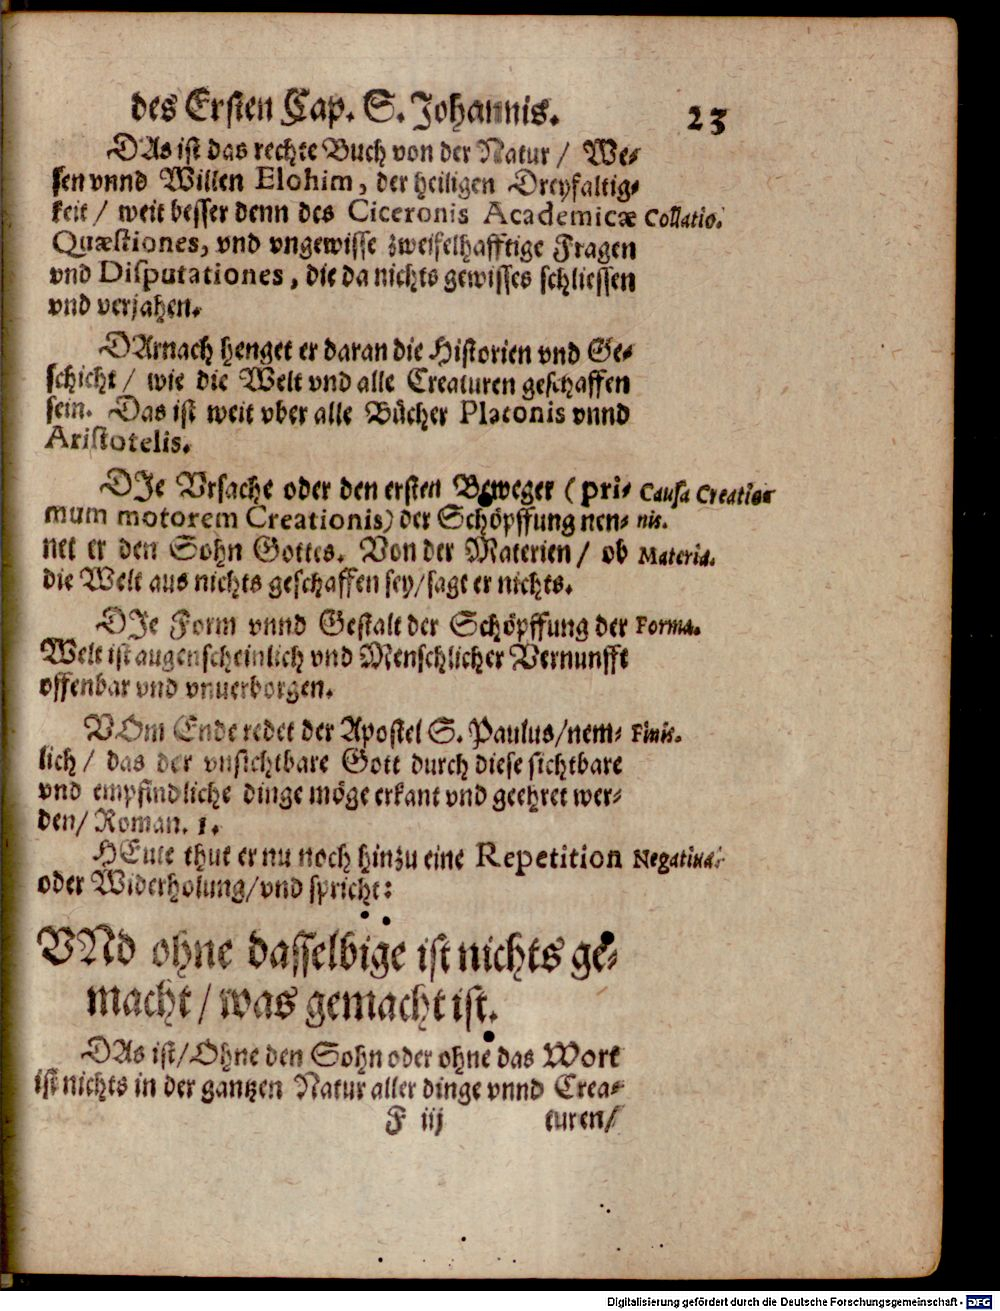 des Ersten Cap. S. Johannis. 23
DAs ist das rechte Buch von der Natur / We-
sen vnnd Willen Elohim, der heiligen Dreyfaltig-
keit / weit besser denn des Ciceronis Academicæ Collatio.
Quæstiones, vnd vngewisse zweifelhafftige Fragen
vnd Disputationes, die da nichts gewisses schliessen
vnd verjahen.
DArnach henget er daran die Historien vnd Ge-
schicht / wie die Welt vnd alle Creaturen geschaffen
sein. Das ist weit vber alle Bücher Platonis vnnd
Aristotelis.
DJe Vrsache oder den ersten Beweger (pri- Causa Creatio-
mum motorem Creationis) der Schöpffung nen- nis.
net er den Sohn Gottes. Von der Materien / ob Materia.
die Welt aus nichts geschaffen sey/sagt er nichts.
DJe Form vnnd Gestalt der Schöpffung der Forma.
Welt ist augenscheinlich vnd Menschlicher Vernunfft
offenbar vnd vnuerborgen.
VOm Ende redet der Apostel S. Paulus/nem- Finis.
lich / das der vnsichtbare Gott durch diese sichtbare
vnd empfindliche dinge möge erkant vnd geehret wer-
den/ Roman. 1.
HEute thut er nu noch hinzu eine Repetition Negatiua.
oder Widerholung/vnd spricht:
VNd ohne dasselbige ist nichts ge-
macht / was gemacht ist.
DAs ist/Ohne den Sohn oder ohne das Wort
ist nichts in der gantzen Natur aller dinge vnnd Crea-
F iij turen/
Digitalisierung gefördert durch die Deutsche Forschungsgemeinschaft - DFG